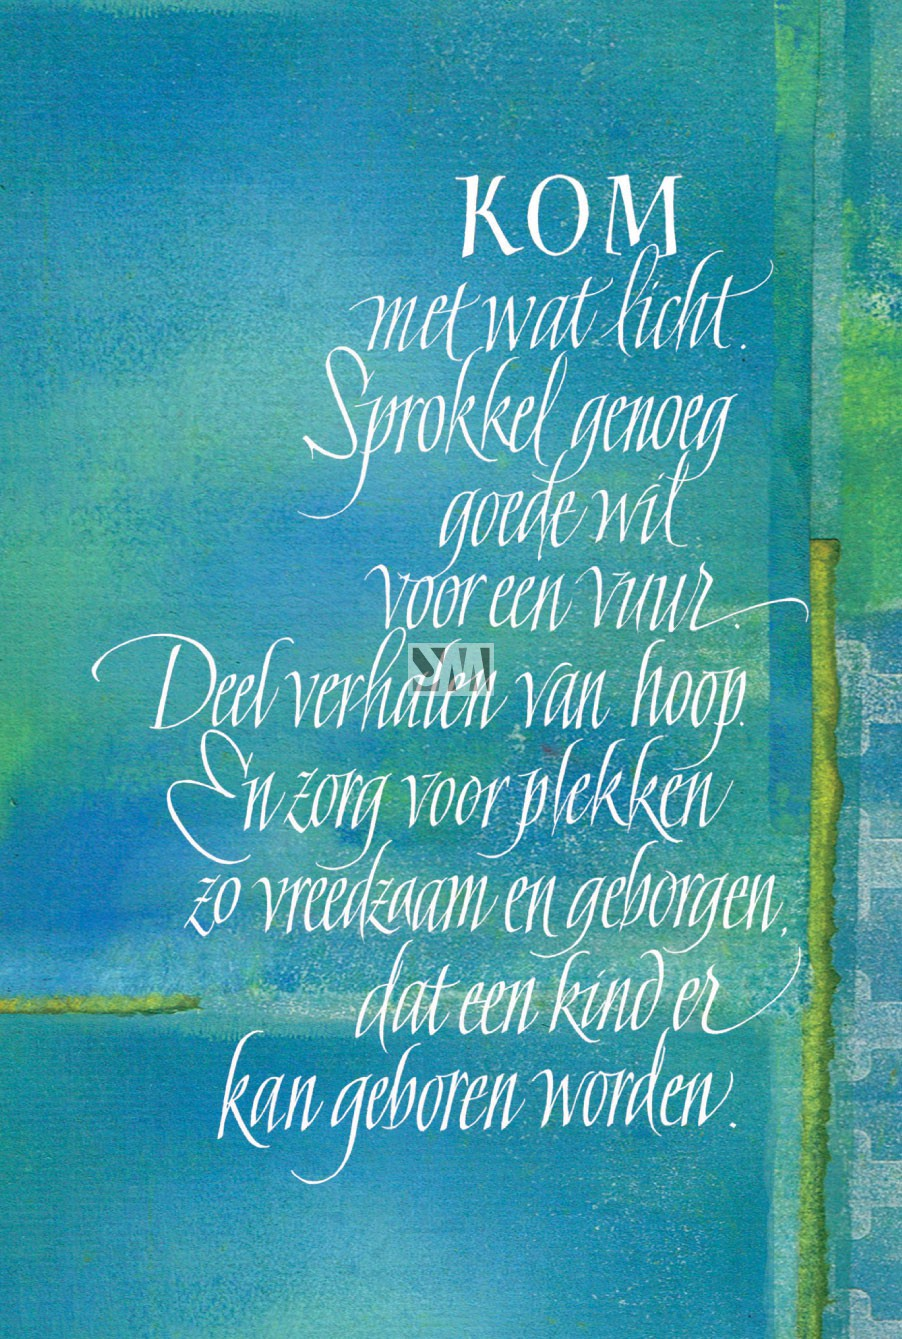 KOM
met wat licht.
Sprokkel genoeg
goede wil
voor een vuur.
Deel verhalen van hoop.
En zorg voor plekken
zo vreedzaam en geborgen,
dat een kind er
kan geboren worden.